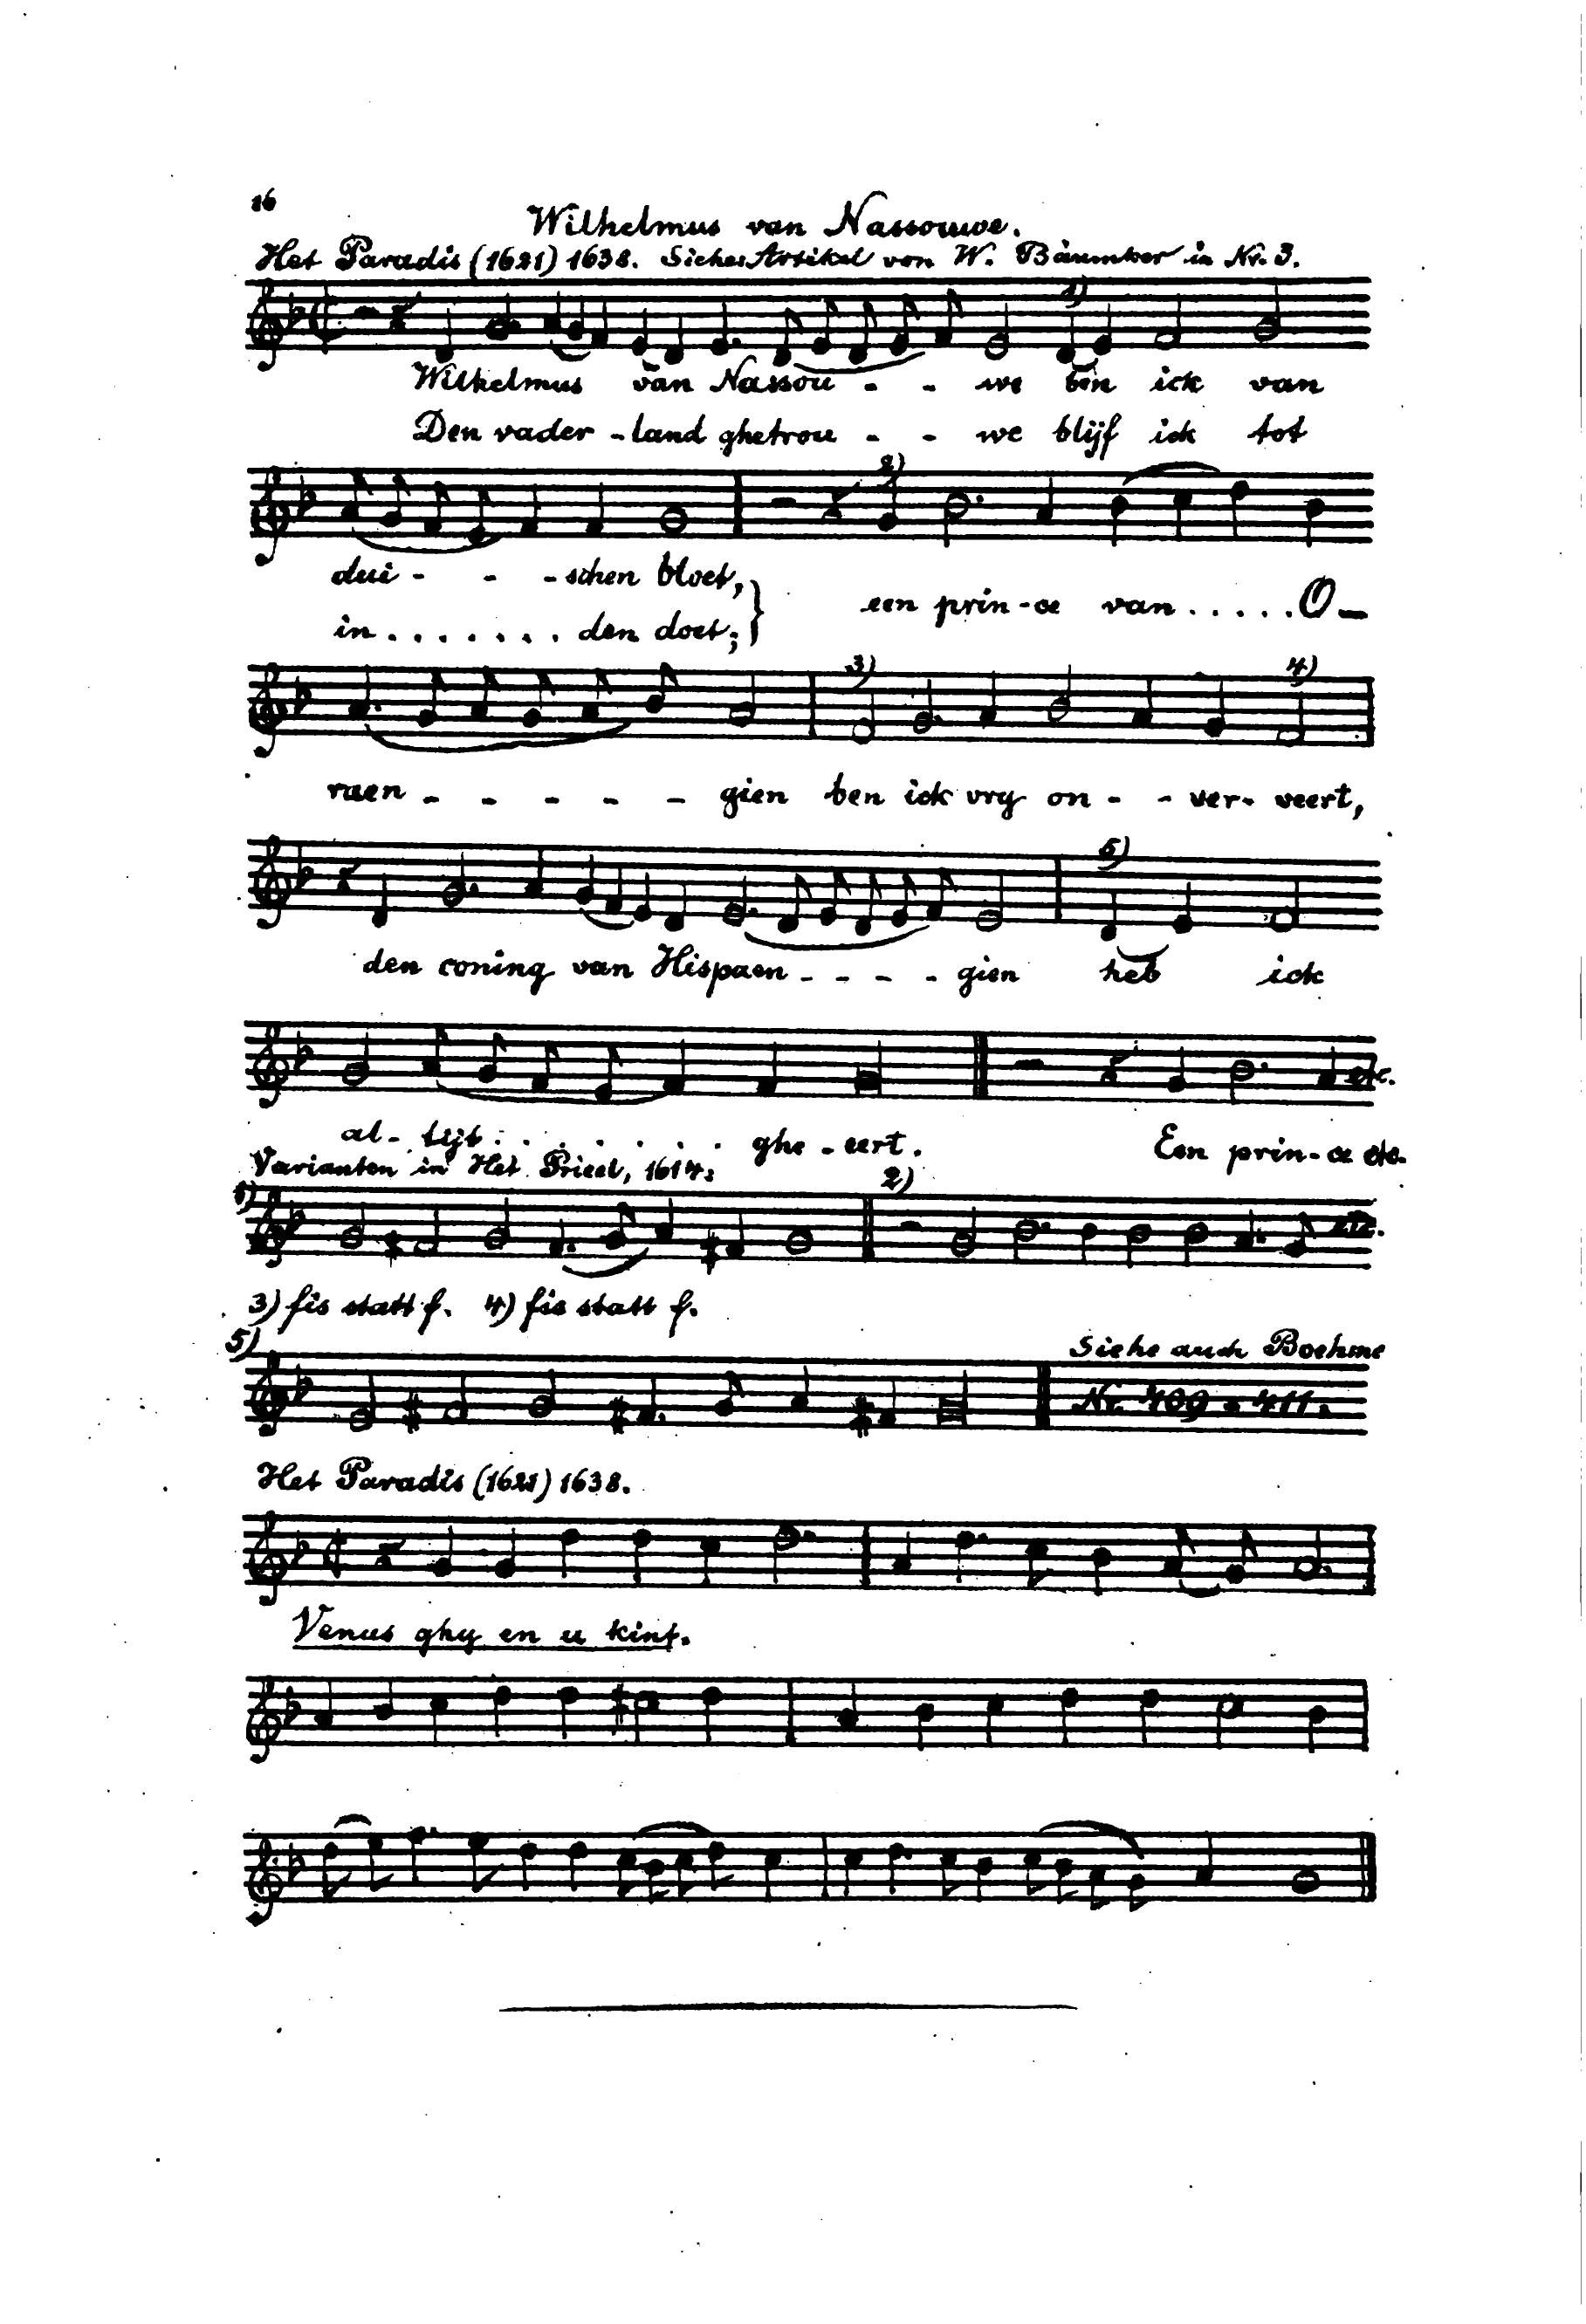 16
Wilhelmus van Nassouwe.
Het Paradis (1621) 1638. Siehe Artikel von W. Bäumker in Nr. 3.
1)
Wilhelmus van Nassou - - we ben ick van
Den vader - land ghetrou - - we blijf ick tot
2)
dui - - - schen bloet, }
een prin - ce van . . . . . O -
in . . . . . . . den doet; }
3) 4)
raen - - - - - gien ben ick vry on - - ver - veert,
5)
den coning van Hispaen - - - - gien heb ick
etc.
al - tijt . . . . . . . ghe - eert. Een prin - ce etc.
Varianten in Het Prieel, 1614:
1) 2) etc.
3) fis statt f. 4) fis statt f.
5) Siehe auch Boehme
Nr. 409 - 411.
Het Paradis (1621) 1638.
Venus ghy en u kint.